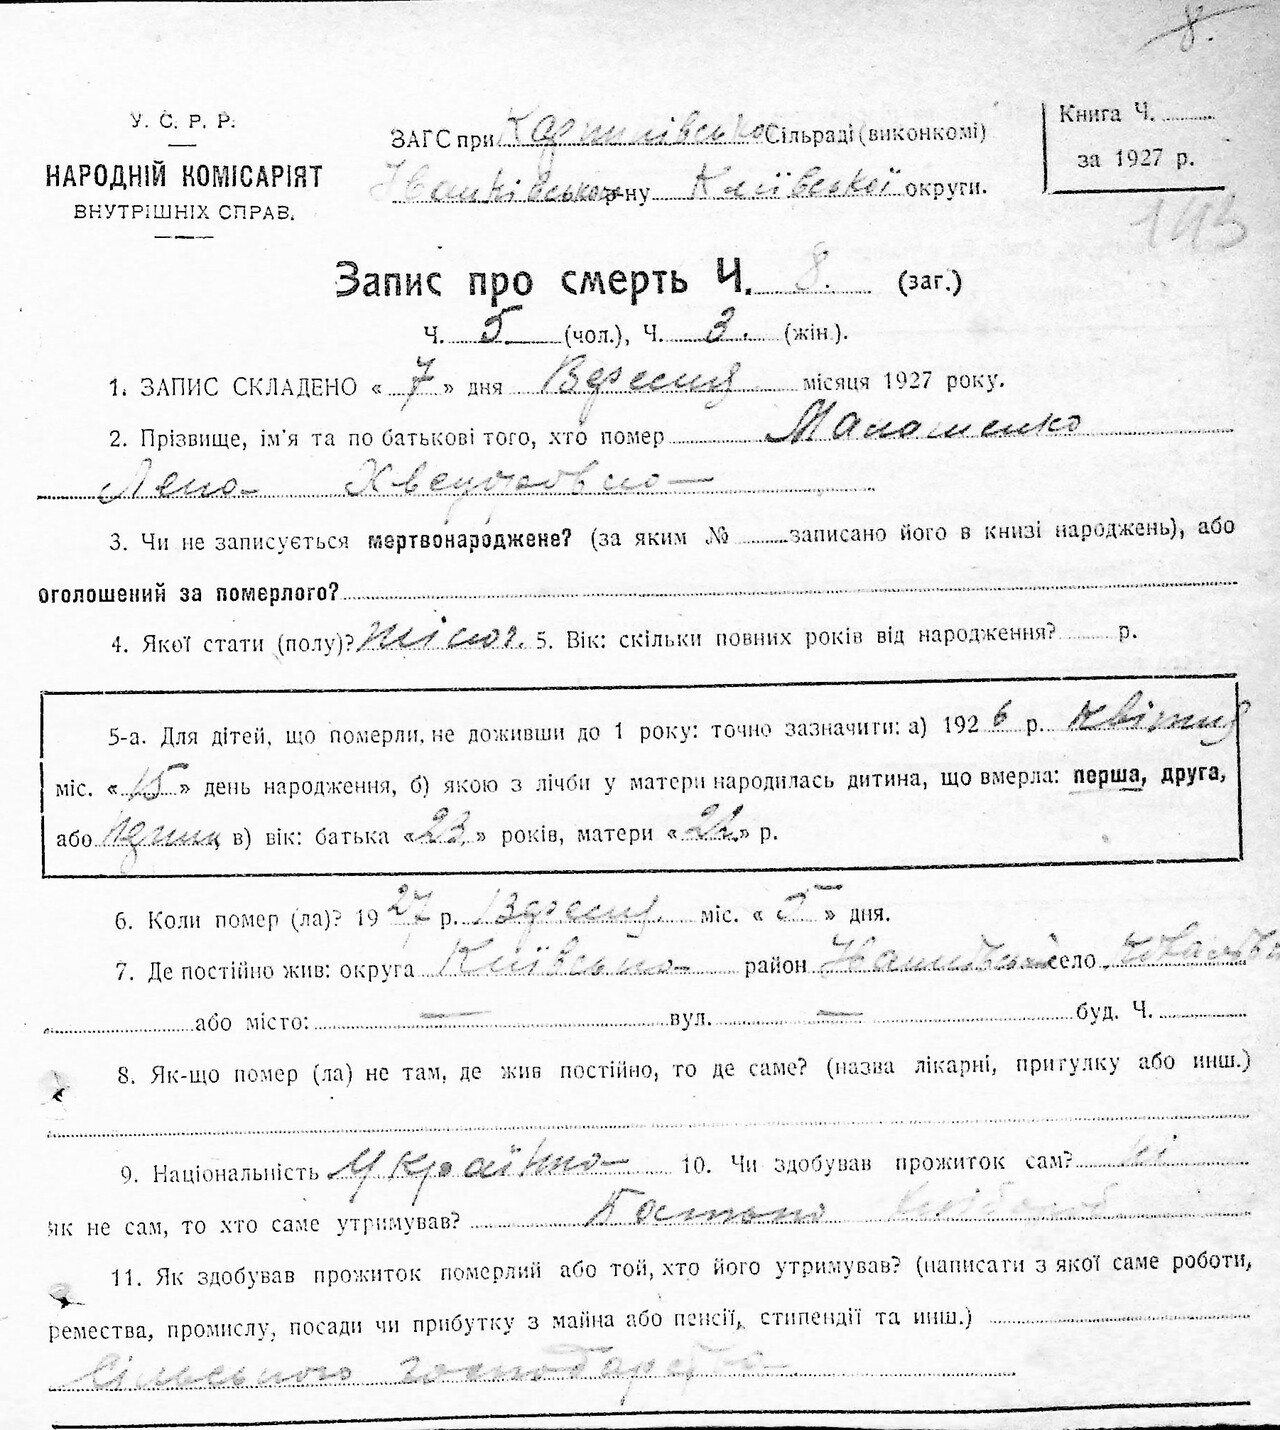 8.
У. С. Р. Р.
НАРОДНІЙ КОМІСАРІЯТ
ВНУТРІШНІХ СПРАВ.
ЗАГС при Сільраді (виконкомі)
р-ну Київської округи.
Книга Ч.
за 1927 р.
143
Запис про смерть Ч. 8. (заг.)
Ч. 5 (чол.), Ч. 3. (жін.).
1. ЗАПИС СКЛАДЕНО « 7 » дня Вересня місяця 1927 року.
2. Прізвище, ім'я та по батькові того, хто помер Малашенко
3. Чи не записується мертвонароджене? (за яким № записано його в книзі народжень), або
оголошений за померлого?
4. Якої стати (полу)? жіноч. 5. Вік: скільки повних років від народження? р.
5-а. Для дітей, що померли, не доживши до 1 року: точно зазначити: а) 1926 р. квітня
міс. « 15 » день народження, б) якою з лічби у матери народилась дитина, що вмерла: перша, друга,
або перша, в) вік: батька « 23 » років, матери « 22 » р.
6. Коли помер (ла)? 1927 р. Вересня міс. « 5 » дня.
7. Де постійно жив: округа Київська район село
або місто: — вул. — буд. Ч.
8. Як-що помер (ла) не там, де жив постійно, то де саме? (назва лікарні, притулку або инш.)
9. Національність Українка 10. Чи здобував прожиток сам? ні
як не сам, то хто саме утримував? Батько
11. Як здобував прожиток померлий або той, хто його утримував? (написати з якої саме роботи,
ремества, промислу, посади чи прибутку з майна або пенсії, стипендії та инш.)
Сільського господарства